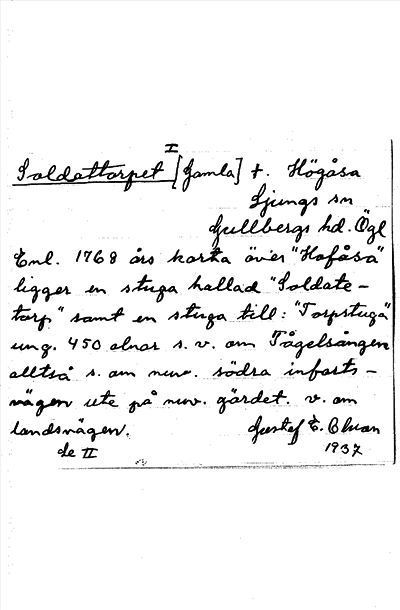 I
Soldattorpet [Gamla] t. Högåsa
Ljungs sn
Gullbergs hd. Ögl
Enl. 1768 års karta över "Hofåsa"
ligger en stuga kallad "Soldate-
torp" samt en stuga till: "Torpstuga"
ung. 450 alnar s. v. om Fågelsången
alltså s. om nuv. södra infarts-
vägen ute på nuv. gärdet. v. om
landsvägen. Gustaf E.
se II 1937